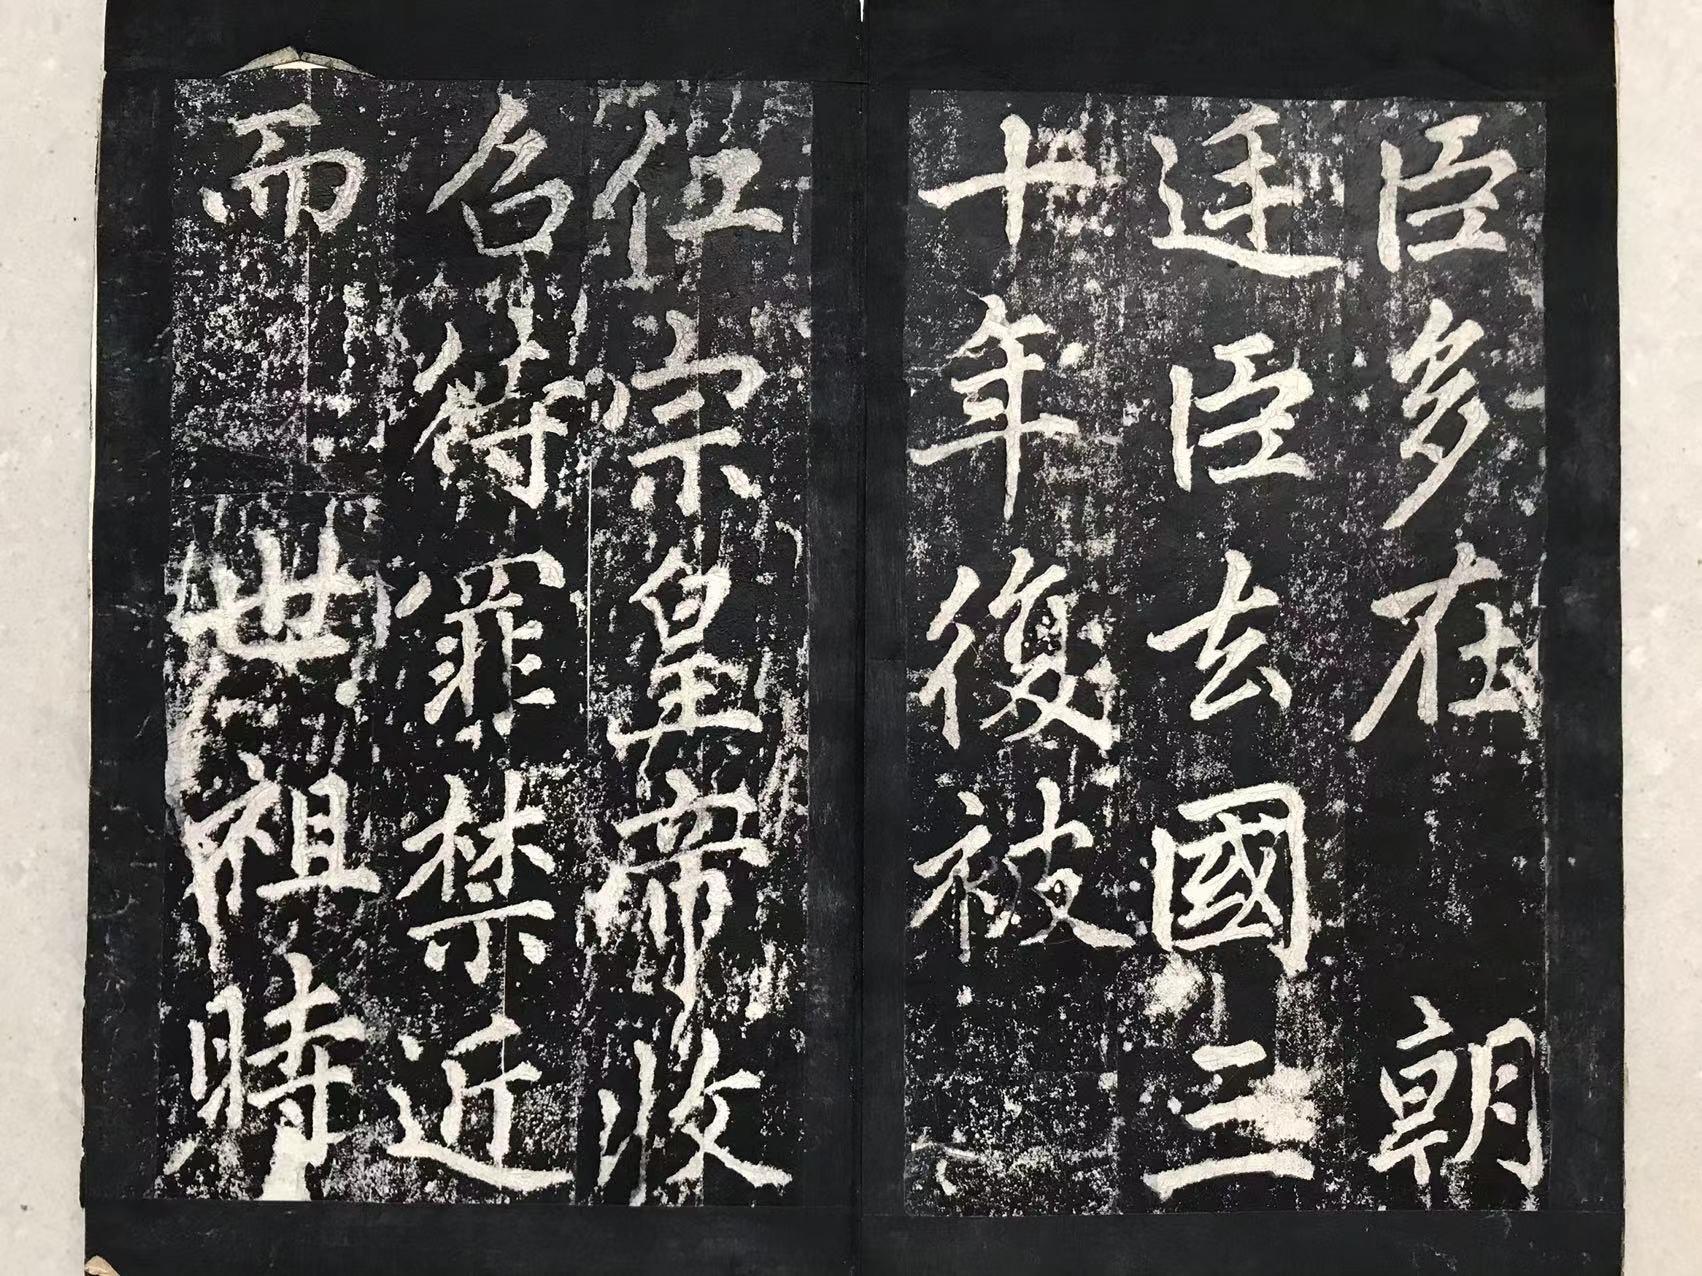 臣多在 朝
廷臣去國三
十年復被
仁宗皇帝收
召待罪禁近
而 世祖時